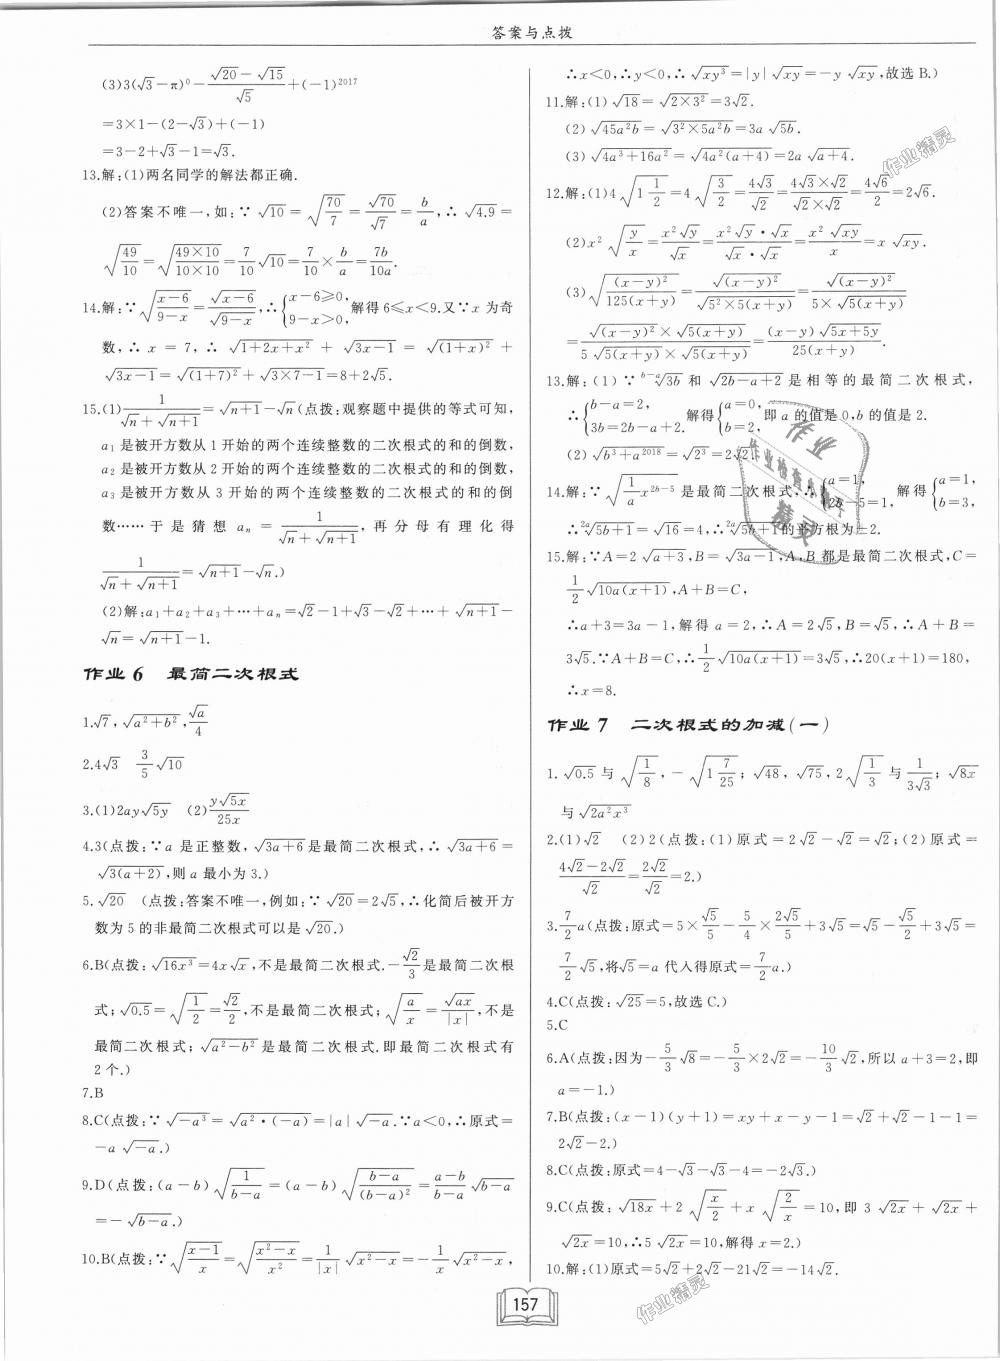 答案与点拨
(3)3(√3-π)⁰-(√20-√15)/√5+(-1)²⁰¹⁷
=3×1-(2-√3)+(-1)
=3-2+√3-1=√3.
13.解:(1)两名同学的解法都正确.
(2)答案不唯一,如:∵√10=√(70/7)=√70/√7=b/a,∴√4.9=
√(49/10)=√((49×10)/(10×10))=7/10√10=7/10×b/a=7b/10a.
14.解:∵√((x-6)/(9-x))=√(x-6)/√(9-x),∴{x-6≥0,9-x>0,解得6≤x<9.又∵x为奇
数,∴x=7,∴√(1+2x+x²)+√(3x-1)=√((1+x)²)+
√(3x-1)=√((1+7)²)+√(3×7-1)=8+2√5.
15.(1)1/(√n+√(n+1))=√(n+1)-√n(点拨:观察题中提供的等式可知,
a₁是被开方数从1开始的两个连续整数的二次根式的和的倒数,
a₂是被开方数从2开始的两个连续整数的二次根式的和的倒数,
a₃是被开方数从3开始的两个连续整数的二次根式的和的倒
数……于是猜想aₙ=1/(√n+√(n+1)),再分母有理化得
1/(√n+√(n+1))=√(n+1)-√n.)
(2)解:a₁+a₂+a₃+…+aₙ=√2-1+√3-√2+…+√(n+1)-
√n=√(n+1)-1.
作业6 最简二次根式
1.√7,√(a²+b²),√a/4
2.4√3 3/5√10
3.(1)2ay√5y (2)y√5x/25x
4.3(点拨:∵a是正整数,√(3a+6)是最简二次根式,∴√(3a+6)=
√(3(a+2)),则a最小为3.)
5.√20 (点拨:答案不唯一,例如:∵√20=2√5,∴化简后被开方
数为5的非最简二次根式可以是√20.)
6.B(点拨:√(16x³)=4x√x,不是最简二次根式.-√2/3是最简二次根
式;√0.5=√(1/2)=√2/2,不是最简二次根式;√(a/x)=√(ax)/|x|,不是
最简二次根式;√(a²-b²)是最简二次根式.即最简二次根式有
2个.)
7.B
8.C(点拨:∵√(-a³)=√(a²·(-a))=|a|√(-a).∵a<0,∴原式=
-a√(-a).)
9.D(点拨:(a-b)√(1/(b-a))=(a-b)√((b-a)/(b-a)²)=(a-b)/(b-a)√(b-a)
=-√(b-a).)
10.B(点拨:∵√((x-1)/x)=√((x²-x)/x²)=1/|x|√(x²-x)=-1/x√(x²-x),
∴x<0,∴y<0,∴√(xy³)=|y|√(xy)=-y√(xy),故选B.)
11.解:(1)√18=√(2×3²)=3√2.
(2)√(45a²b)=√(3²×5a²b)=3a√5b.
(3)√(4a³+16a²)=√(4a²(a+4))=2a√(a+4).
12.解:(1)4√(1 1/2)=4√(3/2)=4√3/√2=(4√3×√2)/(√2×√2)=4√6/2=2√6.
(2)x²√(y/x)=x²√y/√x=(x²√y·√x)/(√x·√x)=x²√(xy)/x=x√(xy).
(3)√((x-y)²/(125(x+y)))=√((x-y)²)/√(5²×5(x+y))=√((x-y)²)/(5×√(5(x+y)))
=(√((x-y)²)×√(5(x+y)))/(5√(5(x+y))×√(5(x+y)))=((x-y)√(5x+5y))/(25(x+y)).
13.解:(1)∵ᵇ⁻ᵃ√3b和√(2b-a+2)是相等的最简二次根式,
∴{b-a=2,3b=2b-a+2.解得{a=0,b=2,即a的值是0,b的值是2.
(2)√(b³+a²⁰¹⁸)=√(2³)=2√2.
14.解:∵√(1/a)x²ᵇ⁻⁵是最简二次根式,∴{a=1,2b-5=1,解得{a=1,b=3,
∴²ᵃ√(5b+1)=√16=4,∴²ᵃ√(5b+1)的平方根为±2.
15.解:∵A=2√(a+3),B=√(3a-1),A,B都是最简二次根式,C=
1/2√(10a(x+1)),A+B=C,
∴a+3=3a-1,解得a=2,∴A=2√5,B=√5,∴A+B=
3√5.∵A+B=C,∴1/2√(10a(x+1))=3√5,∴20(x+1)=180,
∴x=8.
作业7 二次根式的加减(一)
1.√0.5与√(1/8),-√(1 7/25);√48,√75,2√(1/3)与1/(3√3);√8x
与√(2a²x³)
2.(1)√2 (2)2(点拨:(1)原式=2√2-√2=√2;(2)原式=
(4√2-2√2)/√2=2√2/√2=2.)
3.7/2a(点拨:原式=5×√5/5-5/4×2√5/5+3√5=√5-√5/2+3√5=
7/2√5,将√5=a代入得原式=7/2a.)
4.C(点拨:√25=5,故选C.)
5.C
6.A(点拨:因为-5/3√8=-5/3×2√2=-10/3√2,所以a+3=2,即
a=-1.)
7.B(点拨:(x-1)(y+1)=xy+x-y-1=√2+√2-1-1=
2√2-2.)
8.C(点拨:原式=4-√3-√3-4=-2√3.)
9.C(点拨:√18x+2√(x/2)+x√(2/x)=10,即3√2x+√2x+
√2x=10,∴5√2x=10,解得x=2.)
10.解:(1)原式=5√2+2√2-21√2=-14√2.
157
作业精灵
作业
作业检查小助手
精灵
作业精灵